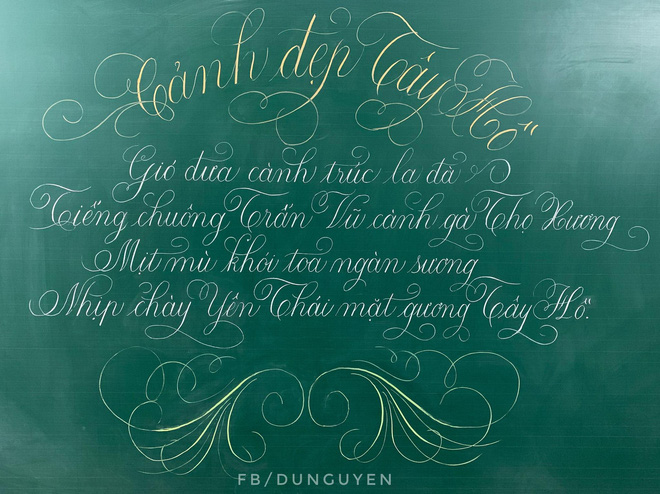 Cảnh đẹp Tây Hồ
Gió đưa cành trúc la đà
Tiếng chuông Trấn Vũ canh gà Thọ Xương
Mịt mù khói toả ngàn sương
Nhịp chày Yên Thái mặt gương Tây Hồ.
FB/DUNGUYEN